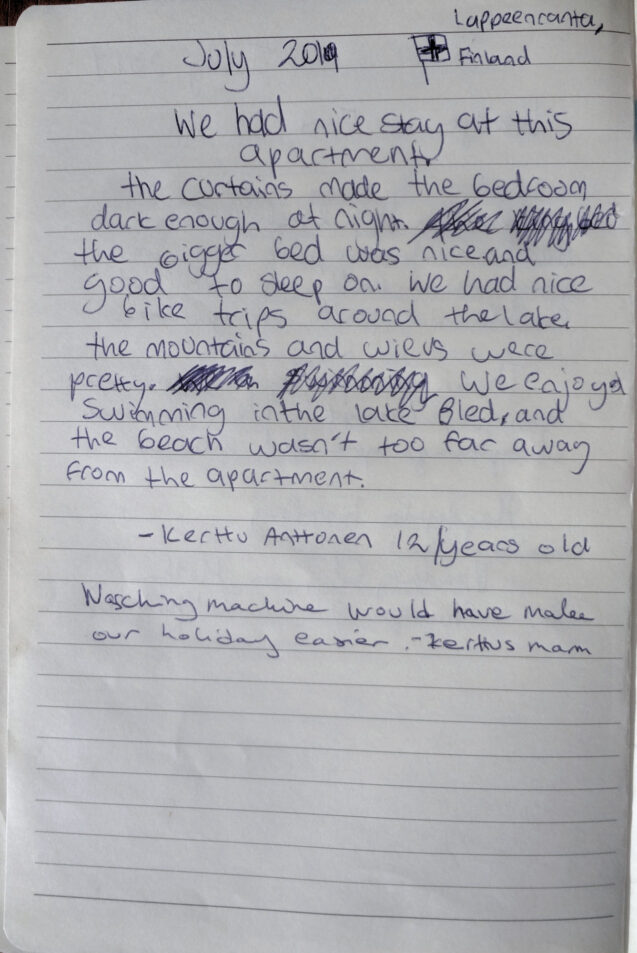 Lappeenranta,
July 2019 Finland
We had nice stay at this
apartment.
the curtains made the bedroom
dark enough at night.
the bigger bed was nice and
good to sleep on. We had nice
bike trips around the lake.
the mountains and wievs were
pretty. We enjoyd
Swimming in the lake Bled, and
the beach wasn't too far away
from the apartment.
- Kerttu Anttonen 12/years old
Wasching machine would have make
our holiday easier. - Kerttus mam